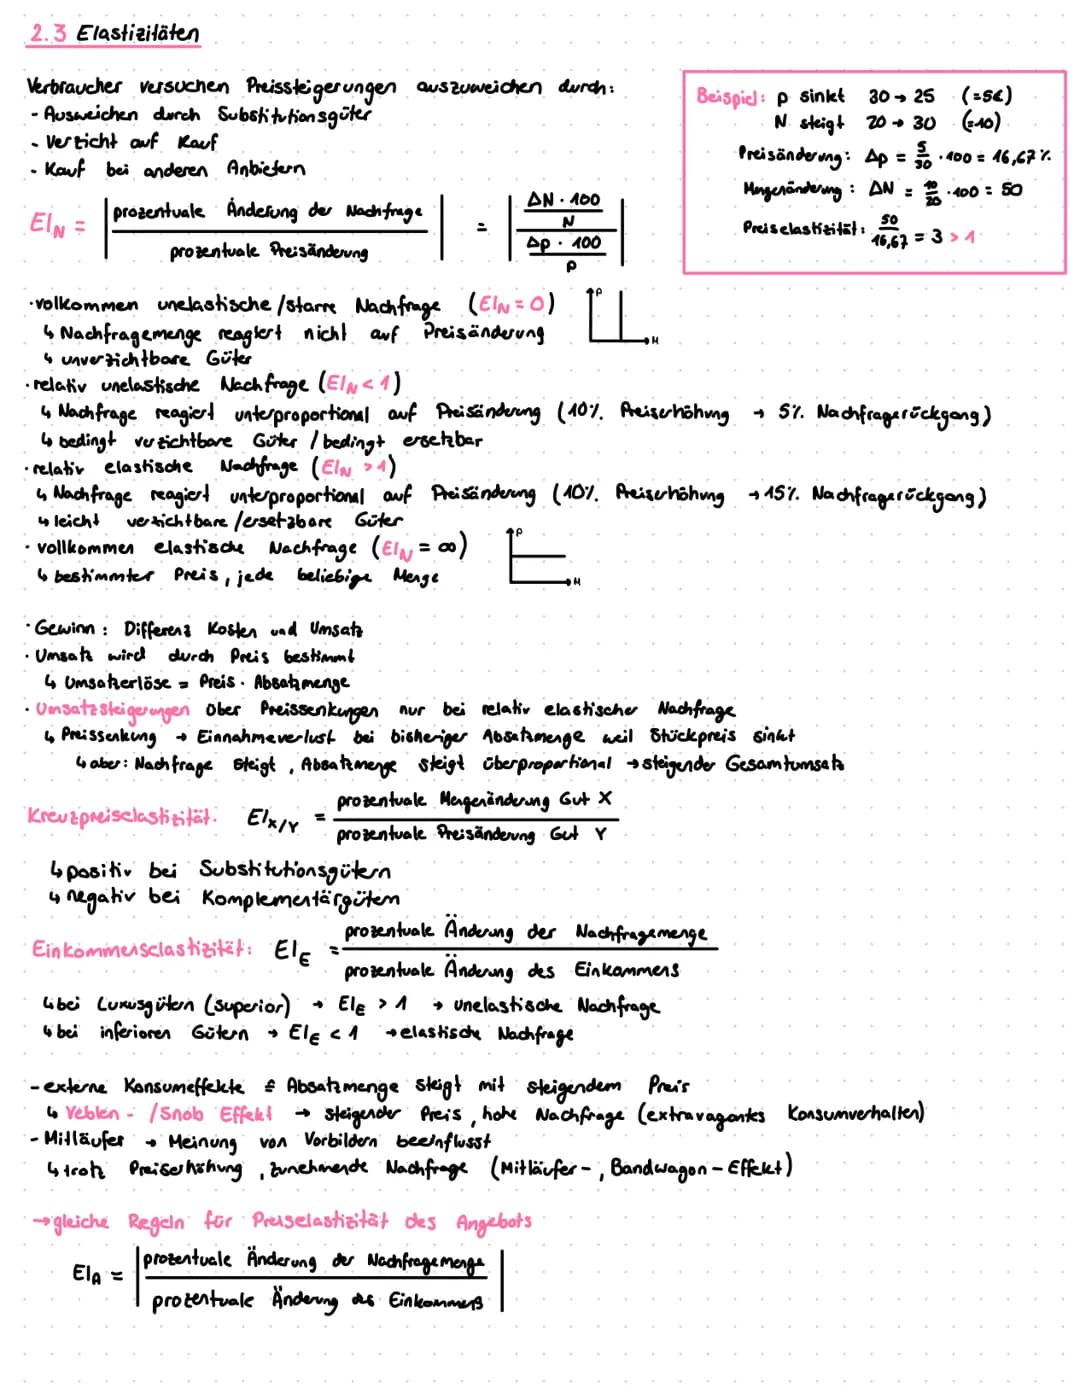 2.3 Elastizitäten
Verbraucher versuchen Preissteigerungen auszuweichen durch:
- Ausweichen durch Substitutionsgüter
- Verzicht auf Kauf
- Kauf bei anderen Anbietern
Beispiel: p sinkt 30 → 25 (=5€)
N steigt 20 → 30 (=10)
Preisänderung: Δp = 5/30 · 100 = 16,67 %
Mengenänderung: ΔN = 10/20 · 100 = 50
Preiselastizität: 50/16,67 = 3 > 1
El_N = | prozentuale Änderung der Nachfrage / prozentuale Preisänderung | = | (ΔN · 100 / N) / (Δp · 100 / p) |
· volkommen unelastische /starre Nachfrage (El_N = 0)
↳ Nachfragemenge reagiert nicht auf Preisänderung
↳ unverzichtbare Güter
p
M
· relativ unelastische Nachfrage (El_N < 1)
↳ Nachfrage reagiert unterproportional auf Preisänderung (10% Preiserhöhung → 5% Nachfragerückgang)
↳ bedingt verzichtbare Güter / bedingt ersetzbar
· relativ elastische Nachfrage (El_N > 1)
↳ Nachfrage reagiert unterproportional auf Preisänderung (10% Preiserhöhung → 15% Nachfragerückgang)
↳ leicht verzichtbare /ersetzbare Güter
· vollkommen elastische Nachfrage (El_N = ∞)
↳ bestimmter Preis, jede beliebige Menge
p
M
· Gewinn: Differenz Kosten und Umsatz
· Umsatz wird durch Preis bestimmt
↳ Umsatzerlöse = Preis · Absatzmenge
· Umsatzsteigerungen über Preissenkungen nur bei relativ elastischer Nachfrage
↳ Preissenkung → Einnahmeverlust bei bisheriger Absatzmenge weil Stückpreis sinkt
↳ aber: Nachfrage steigt, Absatzmenge steigt überproportional → steigender Gesamtumsatz
Kreuzpreiselastizität. El_X/Y = prozentuale Mengenänderung Gut X / prozentuale Preisänderung Gut Y
↳ positiv bei Substitutionsgütern
↳ negativ bei Komplementärgütern
Einkommenselastizität: El_E = prozentuale Änderung der Nachfragemenge / prozentuale Änderung des Einkommens
↳ bei Luxusgütern (superior) → El_E > 1 → unelastische Nachfrage
↳ bei inferioren Gütern → El_E < 1 → elastische Nachfrage
- externe Konsumeffekte ≙ Absatzmenge steigt mit steigendem Preis
↳ Veblen - /Snob Effekt → steigender Preis, hohe Nachfrage (extravagantes Konsumverhalten)
- Mitläufer → Meinung von Vorbildern beeinflusst
↳ trotz Preiserhöhung, zunehmende Nachfrage (Mitläufer-, Bandwagon-Effekt)
→ gleiche Regeln für Preiselastizität des Angebots
El_A = | prozentuale Änderung der Nachfragemenge / prozentuale Änderung des Einkommens |